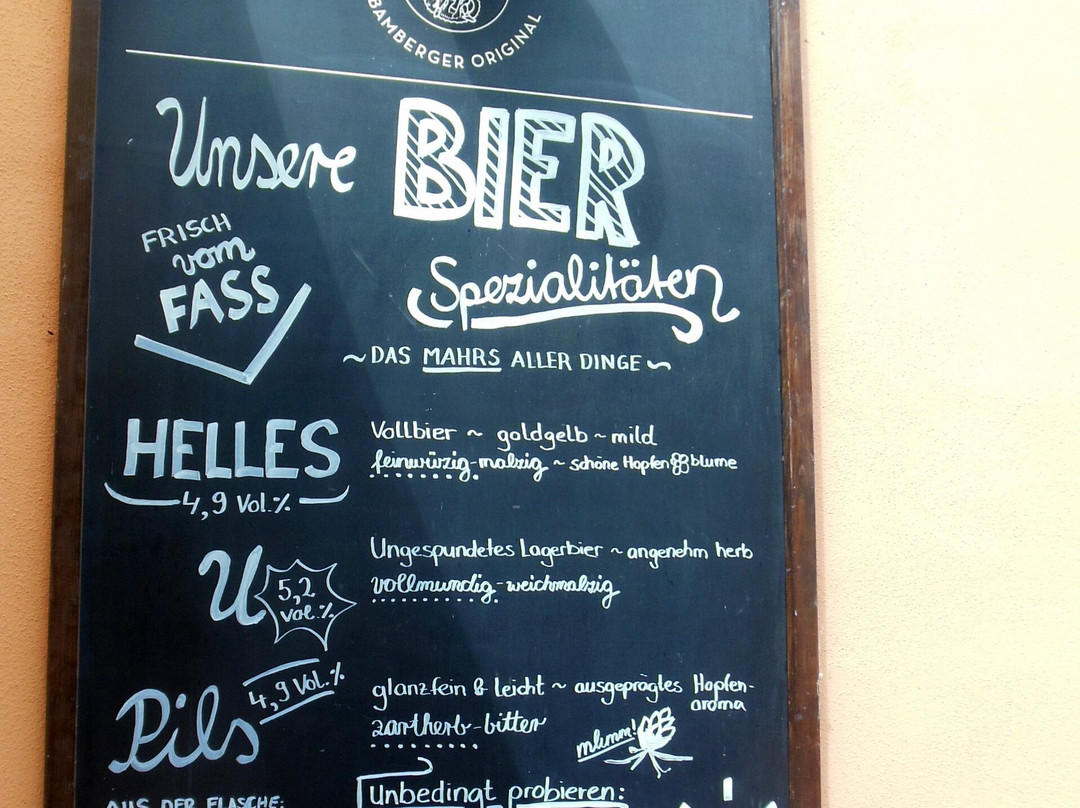 BAMBERGER ORIGINAL
Unsere BIER
Spezialitäten
FRISCH
vom
FASS
~ DAS MAHRS ALLER DINGE ~
HELLES
4,9 Vol.%
Vollbier ~ goldgelb ~ mild
feinwürzig-malzig ~ schöne Hopfenblume
U
5,2
vol.%
Ungespundetes Lagerbier ~ angenehm herb
vollmundig-weichmalzig
Pils
4,9 Vol.%
glanzfein & leicht ~ ausgeprägtes Hopfen-
aroma
zartherb-bitter
mhmm!
Unbedingt probieren:
AUS DER FLASCHE: